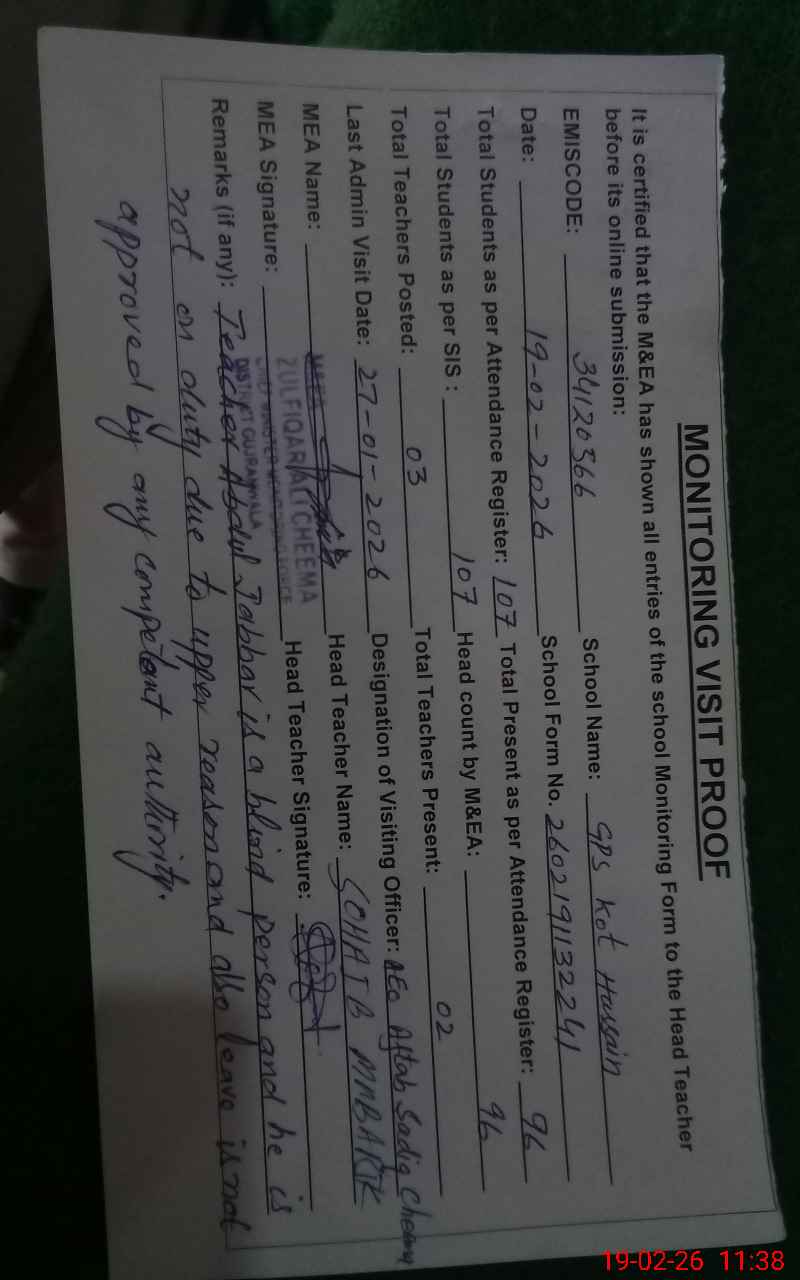 MONITORING VISIT PROOF
It is certified that the M&EA has shown all entries of the school Monitoring Form to the Head Teacher
before its online submission:
EMISCODE: 34120366 School Name: GPS Kot Hussain
Date: 19-02-2026 School Form No. 2602191132241
Total Students as per Attendance Register: 107 Total Present as per Attendance Register: 96
Total Students as per SIS : 107 Head count by M&EA: 96
Total Teachers Posted: 03 Total Teachers Present: 02
Last Admin Visit Date: 27-01-2026 Designation of Visiting Officer: AEO Aftab Sadiq Cheema
MEA Name: Head Teacher Name: SOHAIB MUBARIK
ZULFIQAR ALI CHEEMA
MEA Signature: Head Teacher Signature:
CHIEF MINISTER MONITORING FORCE
DISTRICT GUJRANWALA
Remarks (if any): Teacher Abdul Jabbar is a blind person and he is
not on duty due to upper reason and also leave is not
approved by any competent authority.
19-02-26 11:38